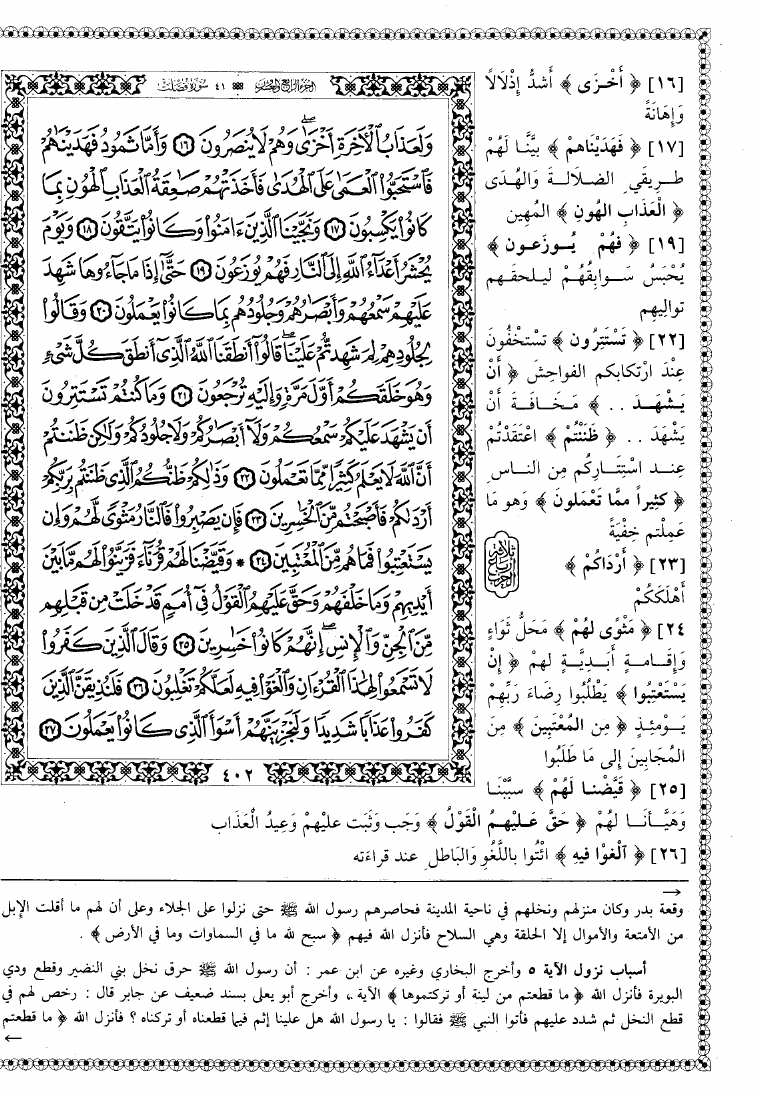 الجزء الرابع والعشرون ٤١ سورة فصلت
وَلَعَذَابُ الْآخِرَةِ أَخْزَىٰ وَهُمْ لَا يُنصَرُونَ ١٦ وَأَمَّا ثَمُودُ فَهَدَيْنَاهُمْ
فَاسْتَحَبُّوا الْعَمَىٰ عَلَى الْهُدَىٰ فَأَخَذَتْهُمْ صَاعِقَةُ الْعَذَابِ الْهُونِ بِمَا
كَانُوا يَكْسِبُونَ ١٧ وَنَجَّيْنَا الَّذِينَ ءَامَنُوا وَكَانُوا يَتَّقُونَ ١٨ وَيَوْمَ
يُحْشَرُ أَعْدَاءُ اللَّهِ إِلَى النَّارِ فَهُمْ يُوزَعُونَ ١٩ حَتَّىٰ إِذَا مَا جَاءُوهَا شَهِدَ
عَلَيْهِمْ سَمْعُهُمْ وَأَبْصَارُهُمْ وَجُلُودُهُم بِمَا كَانُوا يَعْمَلُونَ ٢٠ وَقَالُوا
لِجُلُودِهِمْ لِمَ شَهِدتُّمْ عَلَيْنَا ۖ قَالُوا أَنطَقَنَا اللَّهُ الَّذِي أَنطَقَ كُلَّ شَيْءٍ
وَهُوَ خَلَقَكُمْ أَوَّلَ مَرَّةٍ وَإِلَيْهِ تُرْجَعُونَ ٢١ وَمَا كُنتُمْ تَسْتَتِرُونَ
أَن يَشْهَدَ عَلَيْكُمْ سَمْعُكُمْ وَلَا أَبْصَارُكُمْ وَلَا جُلُودُكُمْ وَلَٰكِن ظَنَنتُمْ
أَنَّ اللَّهَ لَا يَعْلَمُ كَثِيرًا مِّمَّا تَعْمَلُونَ ٢٢ وَذَٰلِكُمْ ظَنُّكُمُ الَّذِي ظَنَنتُم بِرَبِّكُمْ
أَرْدَاكُمْ فَأَصْبَحْتُم مِّنَ الْخَاسِرِينَ ٢٣ فَإِن يَصْبِرُوا فَالنَّارُ مَثْوًى لَّهُمْ وَإِن
يَسْتَعْتِبُوا فَمَا هُم مِّنَ الْمُعْتَبِينَ ٢٤ * وَقَيَّضْنَا لَهُمْ قُرَنَاءَ فَزَيَّنُوا لَهُم مَّا بَيْنَ
أَيْدِيهِمْ وَمَا خَلْفَهُمْ وَحَقَّ عَلَيْهِمُ الْقَوْلُ فِي أُمَمٍ قَدْ خَلَتْ مِن قَبْلِهِم
مِّنَ الْجِنِّ وَالْإِنسِ ۖ إِنَّهُمْ كَانُوا خَاسِرِينَ ٢٥ وَقَالَ الَّذِينَ كَفَرُوا
لَا تَسْمَعُوا لِهَٰذَا الْقُرْءَانِ وَالْغَوْا فِيهِ لَعَلَّكُمْ تَغْلِبُونَ ٢٦ فَلَنُذِيقَنَّ الَّذِينَ
كَفَرُوا عَذَابًا شَدِيدًا وَلَنَجْزِيَنَّهُمْ أَسْوَأَ الَّذِي كَانُوا يَعْمَلُونَ ٢٧
٤٠٢
[١٦] ﴿ أَخْزَى ﴾ أَشدُّ إِذْلالاً
وَإِهَانَةً
[١٧] ﴿ فَهَدَيْنَاهمْ ﴾ بيَّنَّا لَهُمْ
طريقَي الضلالةَ والهُدَى
﴿ الْعَذَابِ الهُونِ ﴾ المُهِين
[١٩] ﴿ فَهُمْ يُوزَعون ﴾
يُحْبَسُ سَوابِقُهُمْ ليلحقَهم
تواليهم
[٢٢] ﴿ تَسْتَتِرُون ﴾ تسْتَخْفُونَ
عِنْدَ ارْتكابكم الفواحِشَ ﴿ أَنْ
يَشْهَدَ .. ﴾ مَخَافَةَ أَنْ
يَشْهَدَ .. ﴿ ظَنَنْتُمْ ﴾ اعْتَقَدْتُمْ
عِنْد اسْتِتَارِكُم مِن الناسِ
﴿ كثيراً ممَّا تَعْمَلونَ ﴾ وَهو مَا
عَمِلْتم خِفْيَةً
[٢٣] ﴿ أَرْدَاكُمْ ﴾
أَهْلَكَكُمْ
ثلاثة أرباع الحزب
٢٤] ﴿ مَثْوًى لهُمْ ﴾ مَحَلُّ ثَوَاءٍ
وَإِقَامةٍ أَبَدِيَّةٍ لهمْ ﴿ إنْ
يَسْتَعْتِبُوا ﴾ يَطْلُبُوا رِضَاءَ رَبِّهِمْ
يَوْمَئِذٍ ﴿ مِن المُعْتَبِينَ ﴾ مِنَ
المُجابِينَ إلى مَا طَلَبُوا
[٢٥] ﴿ قَيَّضْنا لَهُمْ ﴾ سبَّبْنَا
وَهَيَّأنَا لَهُمْ ﴿ حَقَّ عَليهِمُ القَوْلُ ﴾ وَجَب وَثَبَت عليْهِمْ وَعِيدُ الْعَذَاب
[٢٦] ﴿ اَلْغَوْا فيهِ ﴾ ائْتُوا باللَّغْوِ وَالبَاطلِ عند قراءَته
→
وقعة بدر وكان منزلهم ونخلهم في ناحية المدينة فحاصرهم رسول الله ﷺ حتى نزلوا على الجلاء وعلى أن لهم ما أقلت الإبل
من الأمتعة والأموال إلا الحلقة وهي السلاح فأنزل الله فيهم ﴿ سبح لله ما في السماوات وما في الأرض ﴾ .
أسباب نزول الآية ٥ وأخرج البخاري وغيره عن ابن عمر : أن رسول الله ﷺ حرق نخل بني النضير وقطع ودي
البويرة فأنزل الله ﴿ ما قطعتم من لينة أو تركتموها ﴾ الآية ، وأخرج أبو يعلى بسند ضعيف عن جابر قال : رخص لهم في
قطع النخل ثم شدد عليهم فأتوا النبي ﷺ فقالوا : يا رسول الله هل علينا إثم فيما قطعناه أو تركناه ؟ فأنزل الله ﴿ ما قطعتم
←